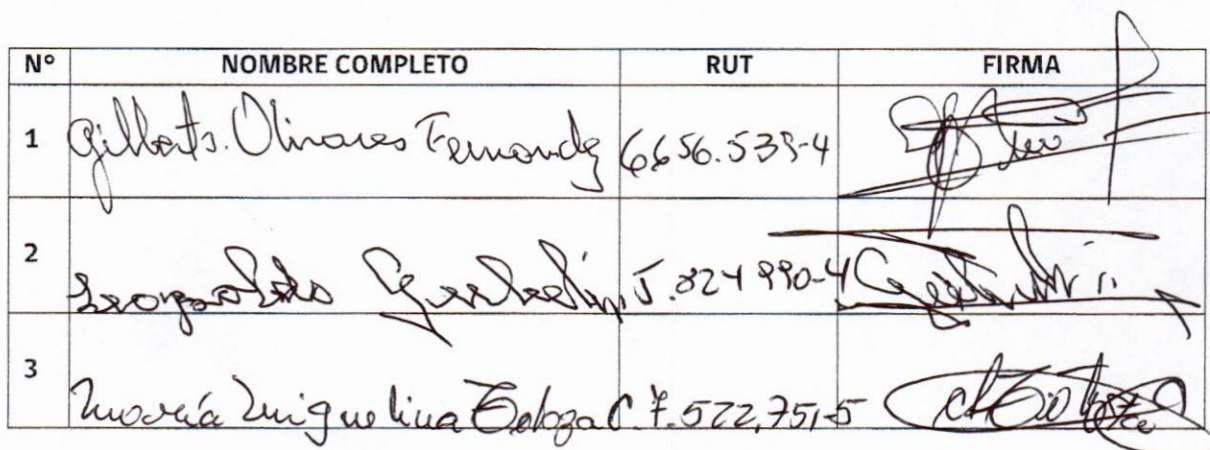 Nº NOMBRE COMPLETO RUT FIRMA
1 Gilberto. Olivares Fernandez 6.656.539-4
2 Leopoldo 5.824990-4
3 María Miguelina Toloza C. 7.522,751-5